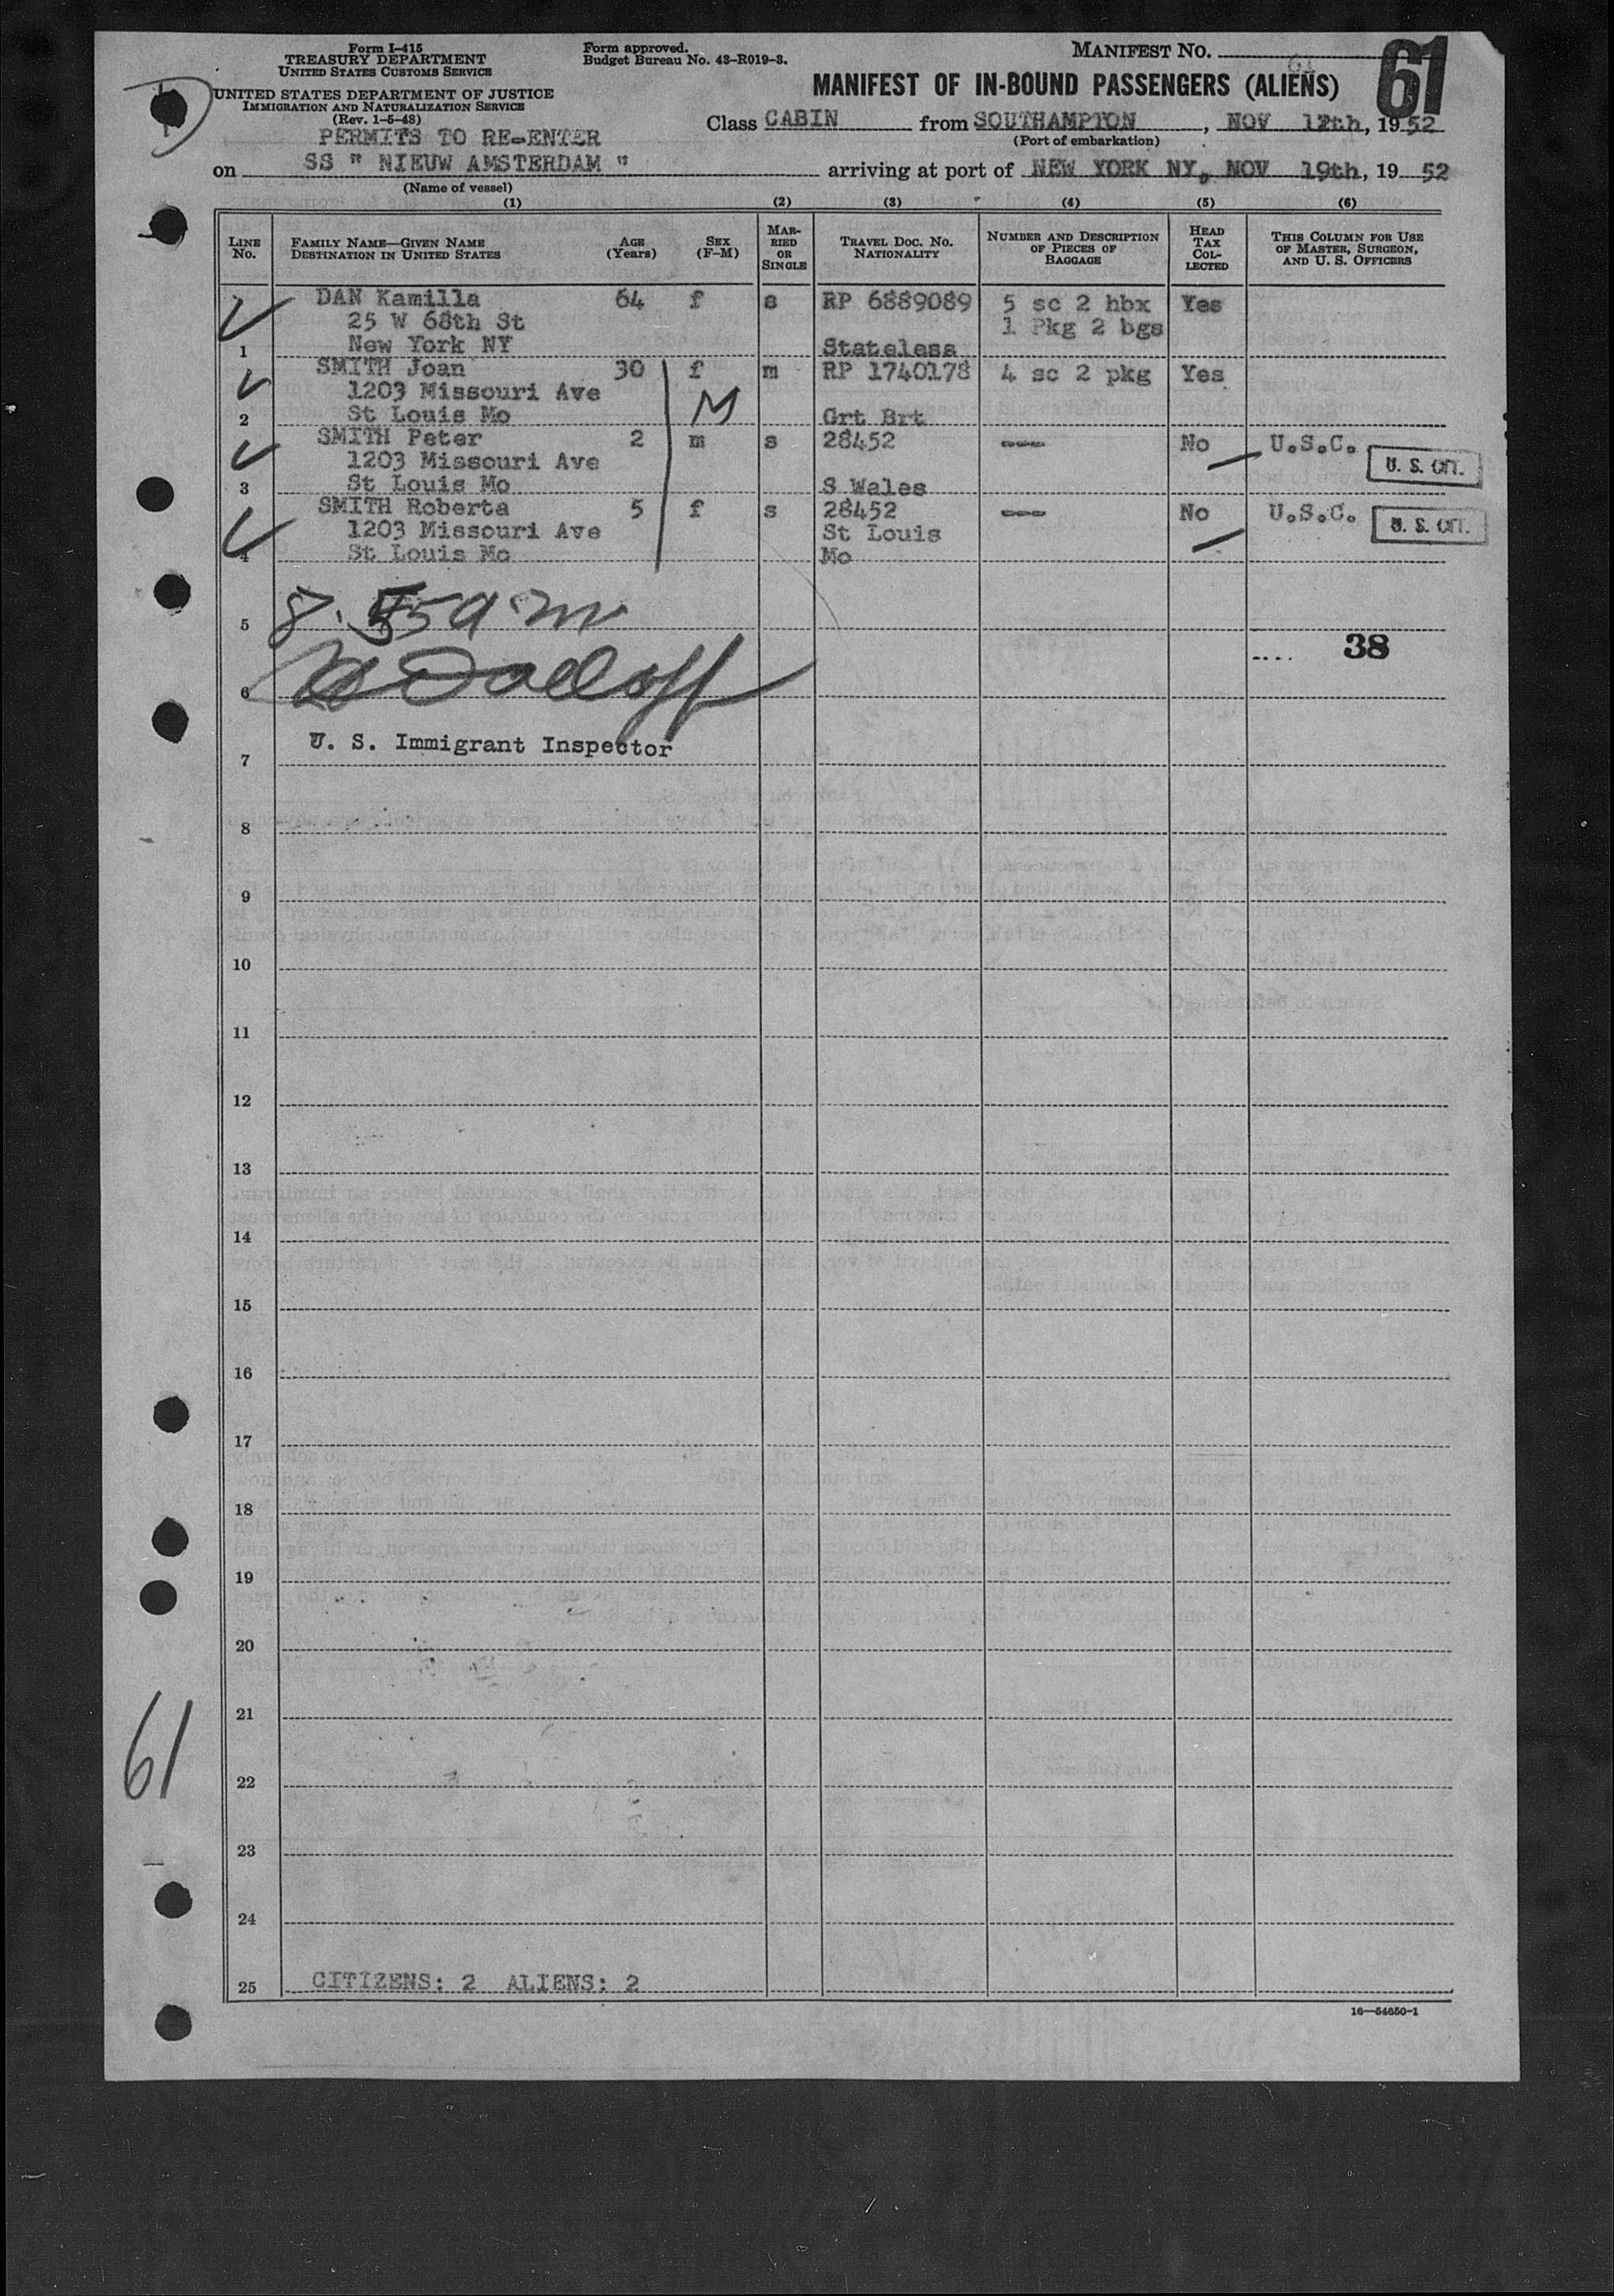 Form I-415
TREASURY DEPARTMENT
UNITED STATES CUSTOMS SERVICE
UNITED STATES DEPARTMENT OF JUSTICE
IMMIGRATION AND NATURALIZATION SERVICE
(Rev. 1-5-48)
Form approved.
Budget Bureau No. 43-R019-3.
MANIFEST NO.
61
MANIFEST OF IN-BOUND PASSENGERS (ALIENS)
Class CABIN from SOUTHAMPTON, NOV 12th, 1952
(Port of embarkation)
PERMITS TO RE-ENTER
on SS " NIEUW AMSTERDAM " arriving at port of NEW YORK NY, NOV 19th, 19 52
(Name of vessel)
(1) (2) (3) (4) (5) (6)
LINE NO. FAMILY NAME—GIVEN NAME DESTINATION IN UNITED STATES AGE (Years) SEX (F-M) MARRIED OR SINGLE TRAVEL DOC. NO. NATIONALITY NUMBER AND DESCRIPTION OF PIECES OF BAGGAGE HEAD TAX COLLECTED THIS COLUMN FOR USE OF MASTER, SURGEON, AND U. S. OFFICERS
DAN Kamilla 64 f s RP 6889089 5 sc 2 hbx Yes
25 W 68th St 1 Pkg 2 bgs
1 New York NY Stateless
SMITH Joan 30 f m RP 1740178 4 sc 2 pkg Yes
1203 Missouri Ave M
2 St Louis Mo Grt Brt
SMITH Peter 2 m s 28452 --- No U.S.C.
1203 Missouri Ave U. S. CIT.
3 St Louis Mo S Wales
SMITH Roberta 5 f s 28452 --- No U.S.C.
1203 Missouri Ave St Louis U. S. CIT.
4 St Louis Mo Mo
5 8.55 a m
38
6
U. S. Immigrant Inspector
7
8
9
10
11
12
13
14
15
16
17
18
19
20
21
61
22
23
24
25 CITIZENS: 2 ALIENS: 2
16—54650-1